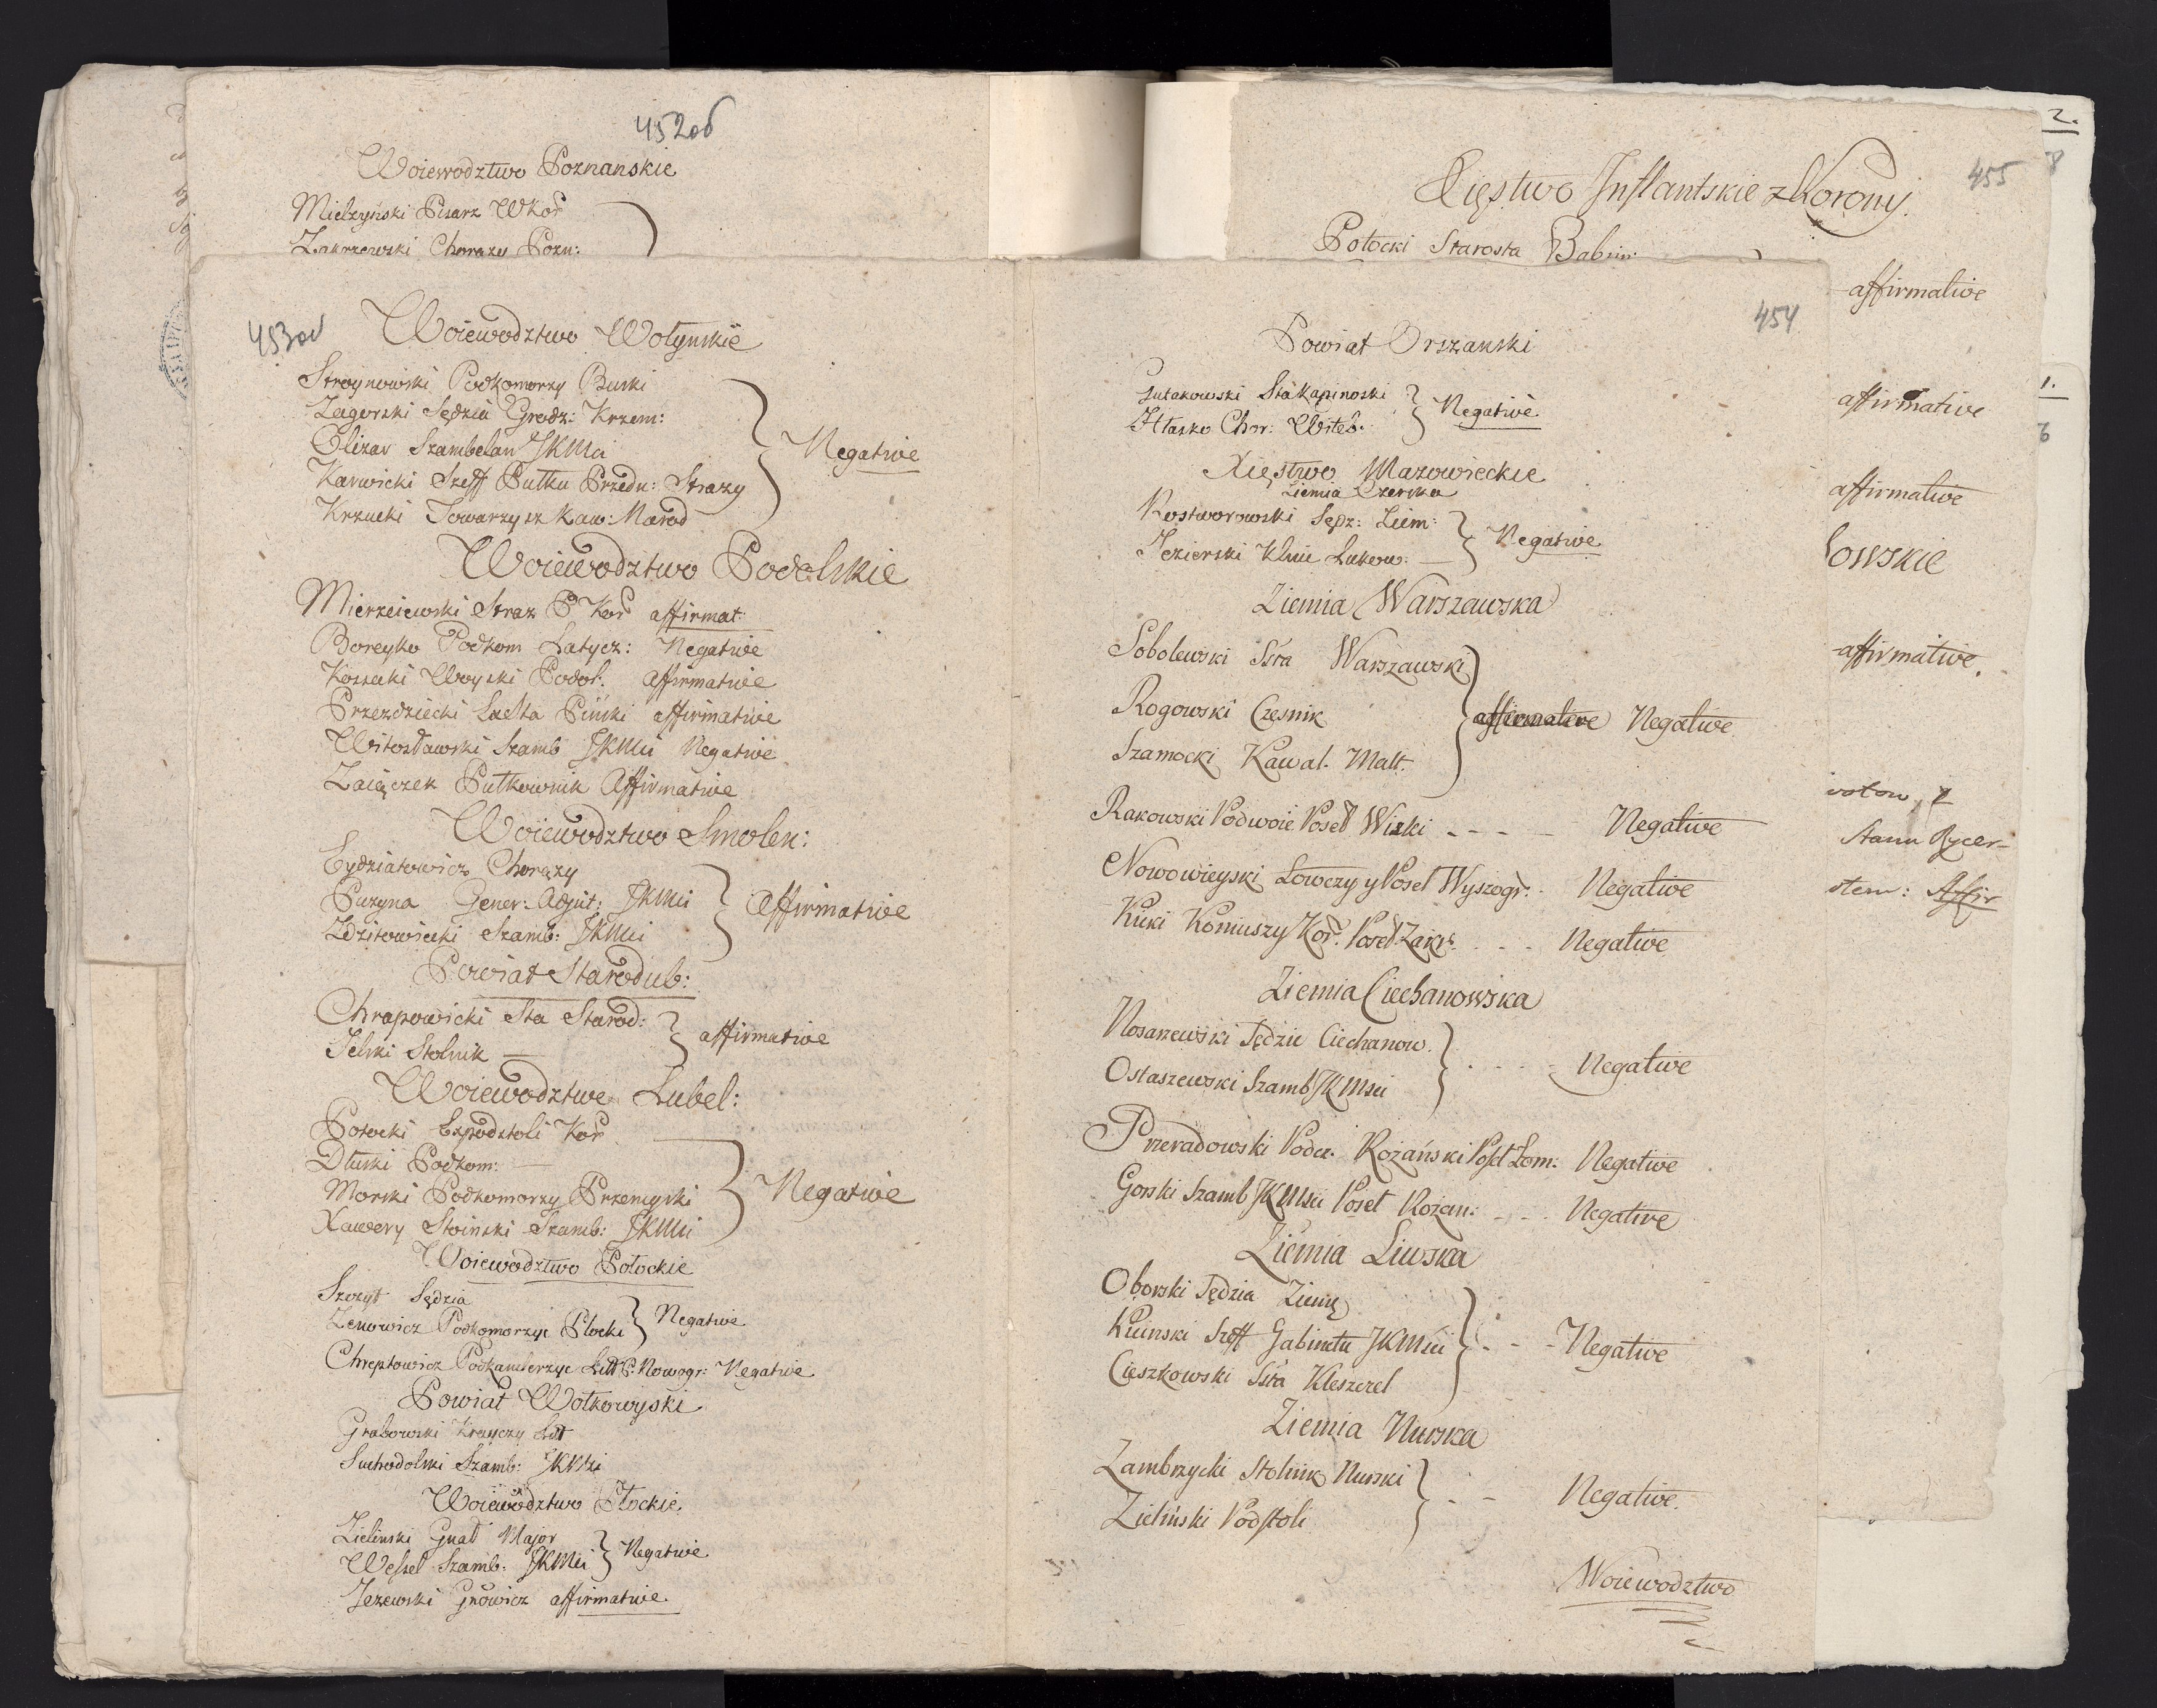 452об
Woiewodztwo Poznanskie
Mielzyński Pisarz WKor
Zakrzewski Chorązy Pozn:
453об
Woiewodztwo Wołynskie
Stroynowski Podkomorzy Buski
Zagorski Sędzia Grodz: Krzem:
Olizar Szambelan JKMci
Karwicki Szeff Pułku Przedn: Strazy
Krzucki Towarzysz Kaw: Narod
Negative
Woiewodztwo Podolskie
Mierzeiewski Straz P Kor affirmat:
Boreyko Podkom Latycz: Negative
Kossecki Woyski Podol. Affirmative
Przezdziecki Sta Piński affirmative
Witosławski Szamb JKMci Negative
Zaiączek Pułkownik Affirmative
Woiewodztwo Smolen:
Eydziatowicz Chorązy
Puzyna Gener: Adjut: JKMci
Zdzitowiecki Szamb: JKMci
Affirmative
Powiat Starodub:
Chrapowicki Sta Starod:
Jelski Stolnik —
affirmative
Woiewodztwo Lubel:
Potocki Expodstoli Kor
Dłuski Podkom: —
Morski Podkomorzy Przemyski
Xawery Stoinski Szamb: JKMci
Negative
Woiewodztwo Połockie
Szczyt Sędzia
Zenowicz Podkomorzyc Płocki
Negative
Chreptowicz Podkanclerzyc Litt P: Nowogr: Negative
Powiat Wołkowyski
Grabowski Krayczy Litt
Suchodolski Szamb: JKMci
Woiewodztwo Płockie
Zielinski Gnał Major
Wessel Szamb: JKMci
Negative
Jezewski Gnowicz affirmative.
454
Powiat Orszanski
Gutakowski Sta Kapinoski
Hłasko Chor: Witeb:
Negative
Xięstwo Mazowieckie
Ziemia Czerska
Kostworowski Sędz: Ziem:
Jezierski Kłuie Lukow: —
Negative
Ziemia Warszawska
Sobolewski Ssta Warszawski
Rogowski Czesnik
Szamocki Kawal. Malt.
affirmative Negative
Rakowski Podwoie Poseł Wiski - - - - Negative
Nowowieyski Łowczy y Poseł Wyszogr: Negative
Kicki Koniuszy Kor. Poseł Zakr: - - - Negative
Ziemia Ciechanowska
Nosarzewski Sędzic Ciechanow.
Ostaszewski Szamb JKMsci
Negative
Przeradowski Podcz. Rożański Poseł Łom: Negative
Gorski Szamb JKMsci Poseł Rożan: - - - Negative
Ziemia Liwska
Oborski Sędzia Ziemę
Kicinski Szeff Gabinetu JKMsci
Cieszkowski Ssta Kleszczel
Negative
Ziemia Nurska
Zambrzycki Stolnik Nurski
Zieliński Podstoli
Negative.
Woiewodztwo
455
Xięstwo Inflantskie z Korony.
Potocki Starosta Babim:
affirmative
affirmative
affirmative
lowskie
affirmative.
votow, z
Stanu Rycer-
stem: Affir
2.
8
1.
6